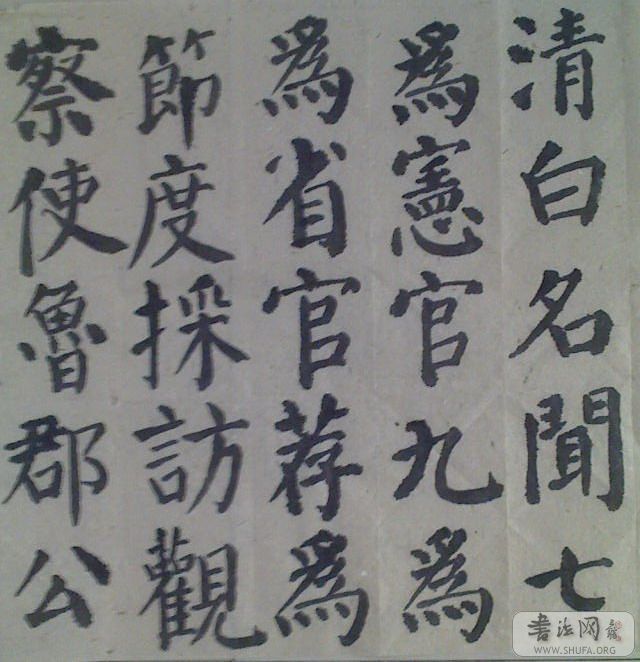 清白名聞七
為憲官九為
為省官荐為
節度採訪觀
察使魯郡公
書法网
WWW.SHUFA.ORG